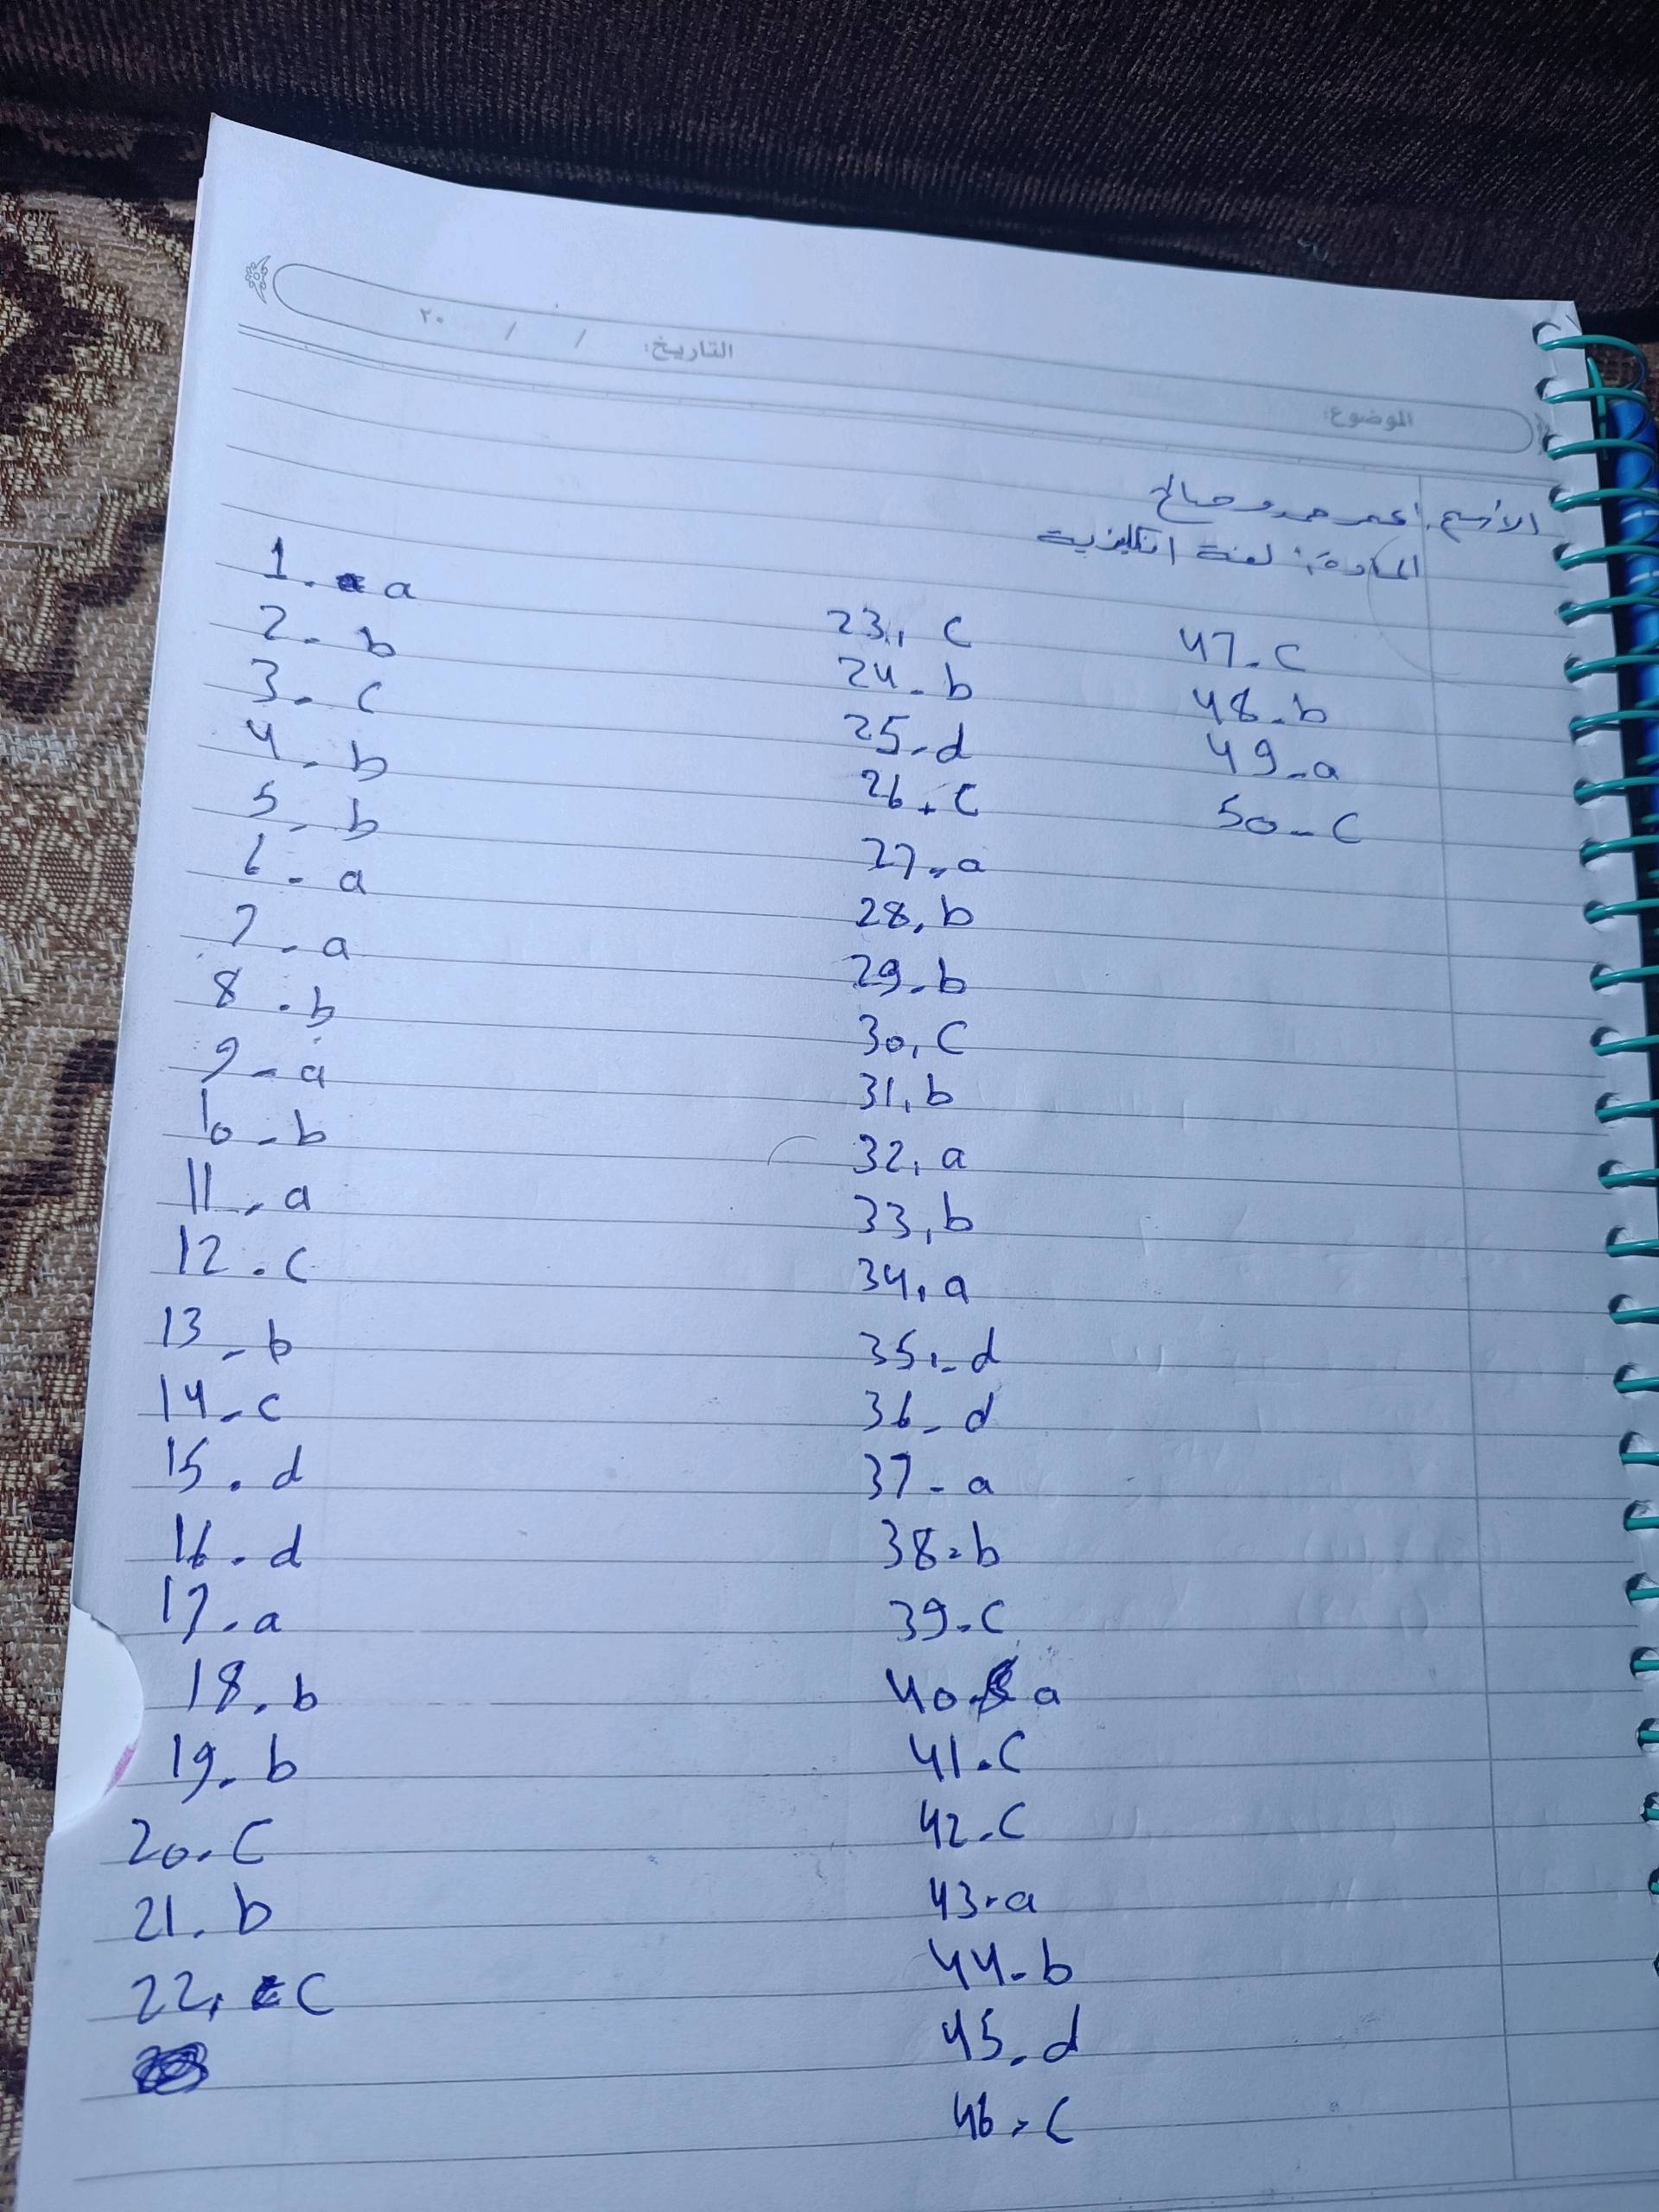 الموضوع:
التاريخ: / / ٢٠
الأسم: عمر حمدو صالح
المادة: لغة انكليزية
1. a
2- b
3- c
4- b
5- b
6- a
7- a
8. b
9- a
10- b
11- a
12. c
13- b
14- c
15. d
16. d
17- a
18. b
19- b
20. C
21. b
22, C
23, c
24- b
25- d
26. C
27- a
28, b
29- b
30, C
31, b
32, a
33, b
34, a
35,- d
36- d
37- a
38- b
39- C
40. a
41. C
42- C
43- a
44- b
45. d
46. C
47- C
48- b
49- a
50- C